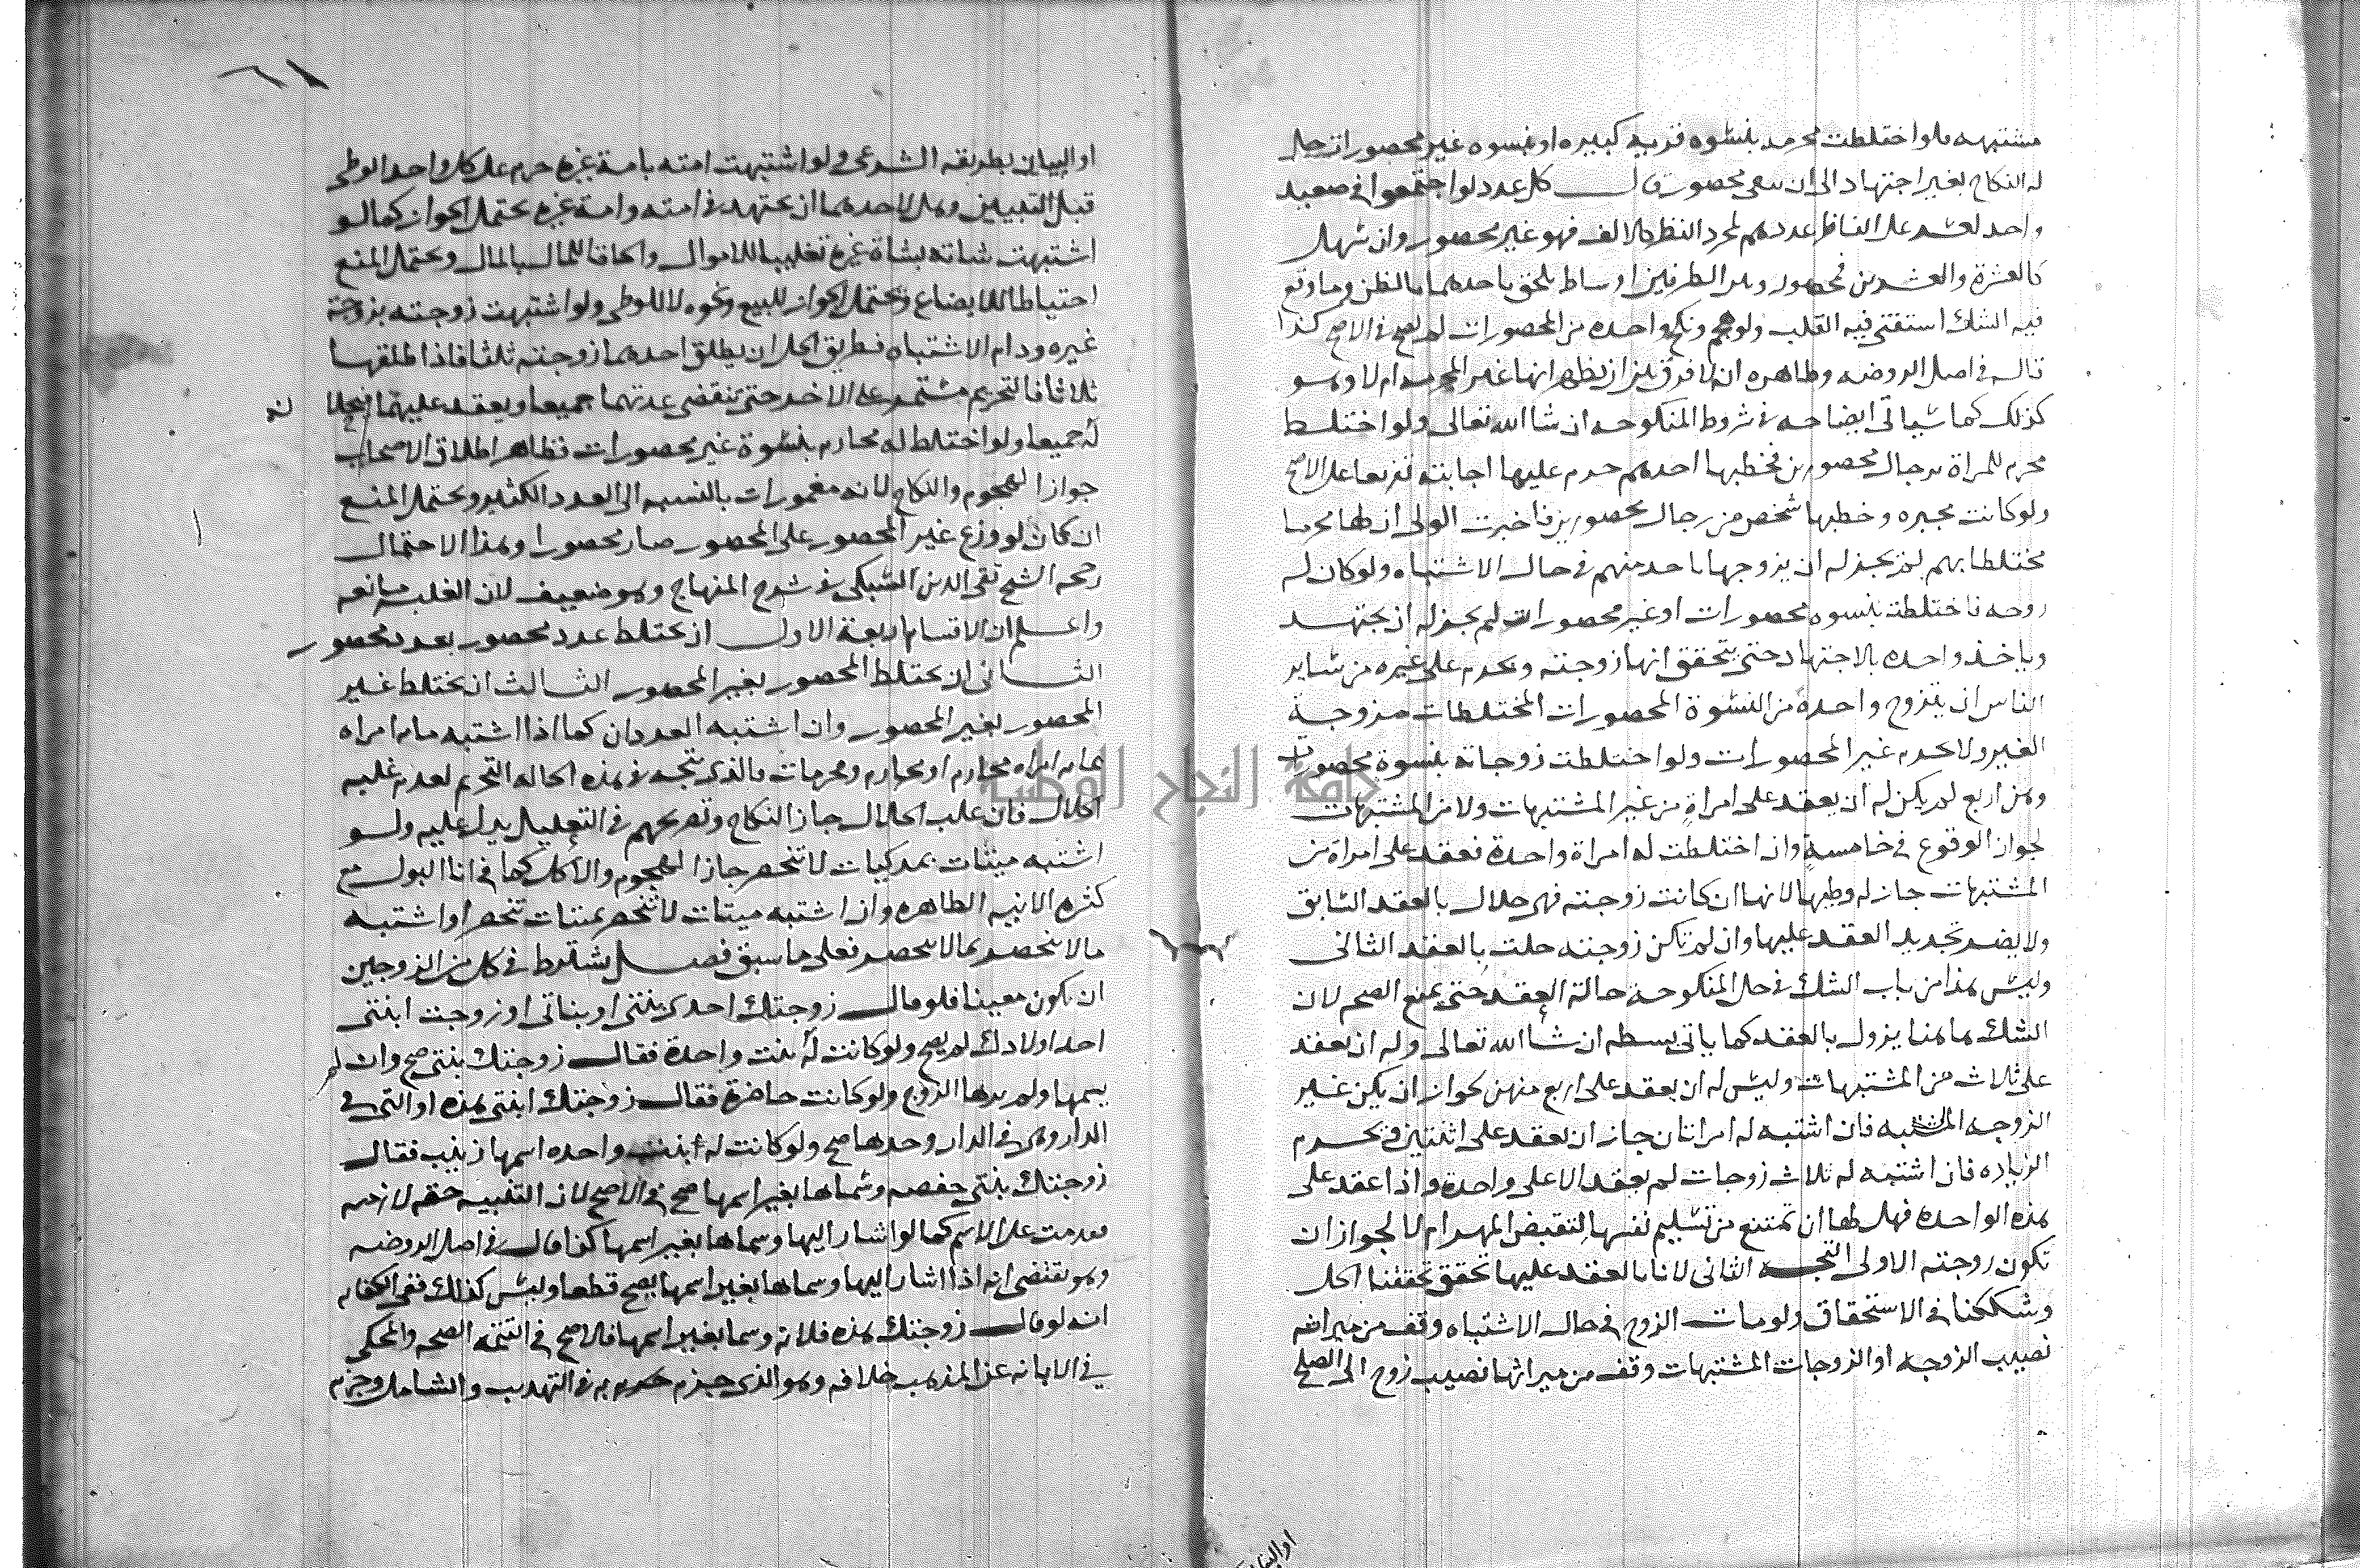 مشتبهه فلو اختلطت محرمه بنسوه قريه كبيره او بنسوه غير محصورات حل
له النكاح بغير اجتهاد الى ان يبقى محصورات قال كل عدد لو اجتمعوا في صعيد
واحد لعسر على الناظر عددهم لمجرد النظر كالالف فهو غير محصور وان سهل
كالعشرة والعشرين فمحصور وبين الطرفين اوساط يلحق باحدهما بالظن وما وقع
فيه الشك استفتى فيه القلب ولو هجم ونكح واحده من المحصورات لم يصح في الاصح كذا
قاله في اصل الروضه وظاهره انه لا فرق بين ان يظهر انها غير المحرمه ام لا وهو
كذلك كما سياتى ايضاحه في شروط المنكوحه ان شا الله تعالى ولو اختلط
محرم للمراة برجال محصورين فخطبها احدهم حرم عليها اجابته تفريعا على الاصح
ولو كانت مجبره وخطبها شخص من رجال محصورين فاخبرت الولى ان لها محرما
مختلطا بهم لم يجز له ان يزوجها باحد منهم في حال الاشتباه ولو كان له
زوجه فاختلطت بنسوه محصورات او غير محصورات لم يجز له ان يجتهد
وياخذ واحده بالاجتهاد حتى يتحقق انها زوجته ويحرم على غيره من ساير
الناس ان يتزوج واحدة من النسوة المحصورات المختلطات بزوجة
الغير ولا يحرم غير المحصورات ولو اختلطت زوجاته بنسوة محصورات
وهن اربع لم يكن له ان يعقد على امراة من غير المشتبهات ولا من المشتبهات
لجواز الوقوع في خامسة وان اختلطت له امراة واحدة فعقد على امراة من
المشتبهات جاز له وطيها لانها ان كانت زوجته فهى حلال بالعقد السابق
ولا يضر تجديد العقد عليها وان لم تكن زوجته حلت بالعقد الثانى
وليس هذا من باب الشك في حل المنكوحة حالة العقد حتى يمنع الصحه لان
الشك هاهنا يزول بالعقد كما ياتى بسطه ان شا الله تعالى وله ان يعقد
على ثلاث من المشتبهات وليس له ان يعقد على اربع منهن لجواز ان يكن غير
الزوجه المشتبه فان اشتبه له امراتان جاز ان يعقد على اثنتين ويحرم
الزياده فان اشتبه له ثلاث زوجات لم يعقد الا على واحدة واذا عقد على
هذه الواحده فهل لها ان تمتنع من تسليم نفسها لتقبض المهر ام لا لجواز ان
تكون زوجته الاولى المتجه الثانى لانا بالعقد عليها تحققنا الحل
وشككنا في الاستحقاق ولو مات الزوج في حال الاشتباه وقف من ميراثه
نصيب الزوجه او الزوجات المشتبهات وقف من ميراثها نصيب زوج الى الصلح
او البيان
او البيان بطريقه الشرعى ولو اشتبهت امته بامة غيره حرم على كل واحد الوطى
قبل التبيين وهل لاحدهما ان يجتهد في امته وامة غيره يحتمل الجواز كما لو
اشتبهت شاته بشاة غيره تغليبا للاموال والحاقا للمال بالمال ويحتمل المنع
احتياطا للابضاع ويحتمل الجواز للبيع ونحوه لا للوطى ولو اشتبهت زوجته بزوجة
غيره ودام الاشتباه فطريق الحل ان يطلق احدهما زوجته ثلثا فاذا طلقها
ثلاثا فالتحريم مستمر على الاخر حتى تنقضى عدتهما جميعا ويعقد عليهما فيحلا
له جميعا ولو اختلط له محارم بنسوة غير محصورات فظاهر اطلاق الاصحاب
جواز الهجوم والنكاح لانه مغمورات بالنسبه الى العدد الكثير ويحتمل المنع
ان كان لو وزع غير المحصور على المحصور صار محصورا وهذا الاحتمال
رجحه الشيخ تقى الدين السبكى في شرح المنهاج وهو ضعيف لان الغلبه مانعه
واعلم ان الاقسام اربعة الاول ان يختلط عدد محصور بعدد محصور
الثانى ان يختلط المحصور بغير المحصور الثالث ان يختلط غير
المحصور بغير المحصور وان اشتبه العددان كما اذا اشتبه مايه امراه
بمايه امراه محارم او محارم ومحرمات فالذى يتجه في هذه الحاله التحريم لعدم غلبه
الحلال فان غلب الحلال جاز النكاح وتصريحهم في التعليل يدل عليه ولو
اشتبه ميتات بمذكيات لا تنحصر جاز الهجوم والاكل كما في انا البول مع
كثره الانيه الطاهره وان اشتبه ميتات لا تنحصر بميتات تنحصر او اشتبه
مالا ينحصر بمالا ينحصر فعلى ما سبق فصل يشترط في كل من الزوجين
ان يكون معينا فلو قال زوجتك احدى بنتى او بناتى او زوجت ابنتى
احد اولادك لم يصح ولو كانت له بنت واحدة فقال زوجتك بنتى صح وان لم
يسمها ولم يرها الزوج ولو كانت حاضرة فقال زوجتك ابنتى هذه او التى في
الدار وهى في الدار وحدها صح ولو كانت له ابنت واحده اسمها زينب فقال
زوجتك بنتى حفصه وسماها بغير اسمها صح في الاصح لان التنبيه لازمه
قدمت على الاسم كما لو اشار اليها وسماها بغير اسمها كذا قال في اصل الروضه
وهو يقتضى انه اذا اشار اليها وسماها بغير اسمها يصح قطعا وليس كذلك ففى الكفايه
انه لو قال زوجتك هذه فلانه وسما بغير اسمها فالاصح في التتمه الصحه والمحكى
في الابانه عن المذهب خلافه وهو الذى جزم به في التهذيب والشامل وجزم